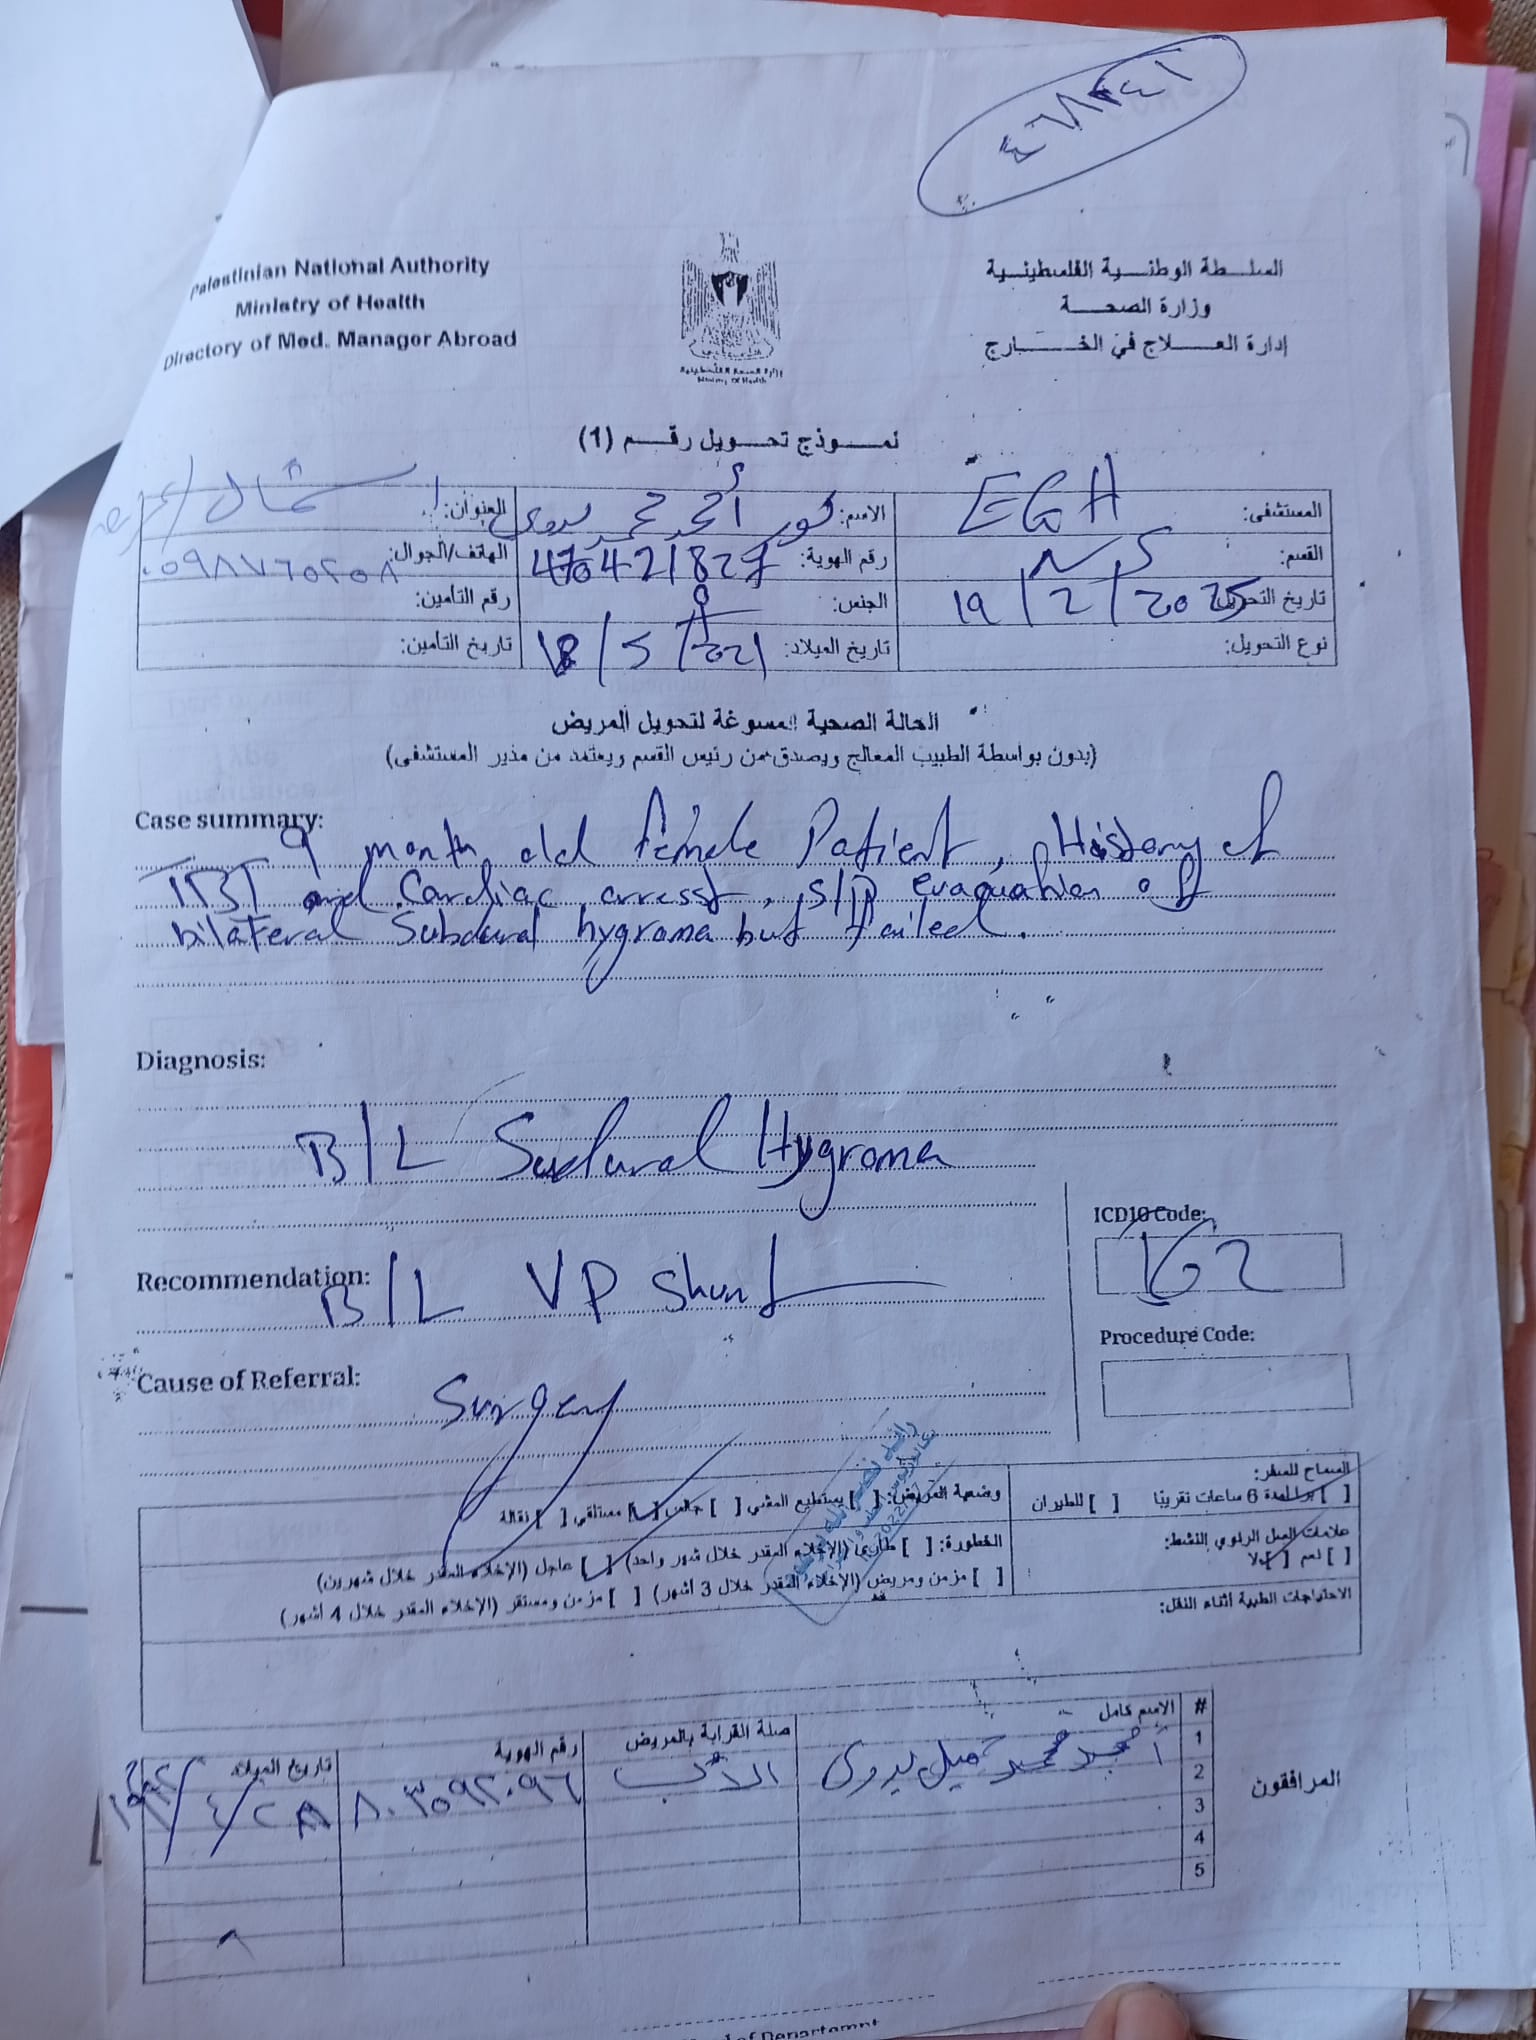 ٤٦٨٢٤١
Palestinian National Authority
Ministry of Health
Directory of Med. Manager Abroad
السلطة الوطنية الفلسطينية
وزارة الصحة
إدارة العلاج في الخارج
وزارة الصحة الفلسطينية
Ministry of Health
نموذج تحويل رقم (1)
المستشفى: EGH
الاسم: أمجد محمد بدوي
العنوان: شمال غزة
القسم: NS
رقم الهوية: 470421827
الهاتف/الجوال: ٠٥٩٨٧٦٥٢٥٨
تاريخ التحويل: 19/2/2025
الجنس:
رقم التأمين:
نوع التحويل:
تاريخ الميلاد: /5/
تاريخ التأمين:
الحالة الصحية المسوغة لتحويل المريض
(بدون بواسطة الطبيب المعالج ويصدق من رئيس القسم ويعتمد من مدير المستشفى)
Case summary: 9 month old female Patient, History of
TBI and Cardiac arrest, S/P evacuation of
bilateral Subdural hygroma but failed.
Diagnosis:
B/L Sudural Hygroma
ICD10 Code: I62
Recommendation: B/L VP shunt
Procedure Code:
Cause of Referral: Surgery
السماح للسفر:
[ ] برا لمدة 6 ساعات تقريبًا [ ] للطيران
وضعية المريض: [ ] يستطيع المشي [ ] جالس [ ] مستلقي [ ] نقالة
علامات السل الرئوي النشط:
[ ] نعم [ ] لا
الخطورة: [ ] طارئ (الإخلاء المقدر خلال شهر واحد) [ ] عاجل (الإخلاء المقدر خلال شهرين)
[ ] مزمن ومريض (الإخلاء المقدر خلال 3 أشهر) [ ] مزمن ومستقر (الإخلاء المقدر خلال 4 أشهر)
الاحتياجات الطبية أثناء النقل:
المرافقون
# الاسم كامل صلة القرابة بالمريض رقم الهوية تاريخ الميلاد
1 أمجد محمد جميل بدوي الأب ٨٠٣٥٩٢٠٩٦
2
3
4
5
of Department